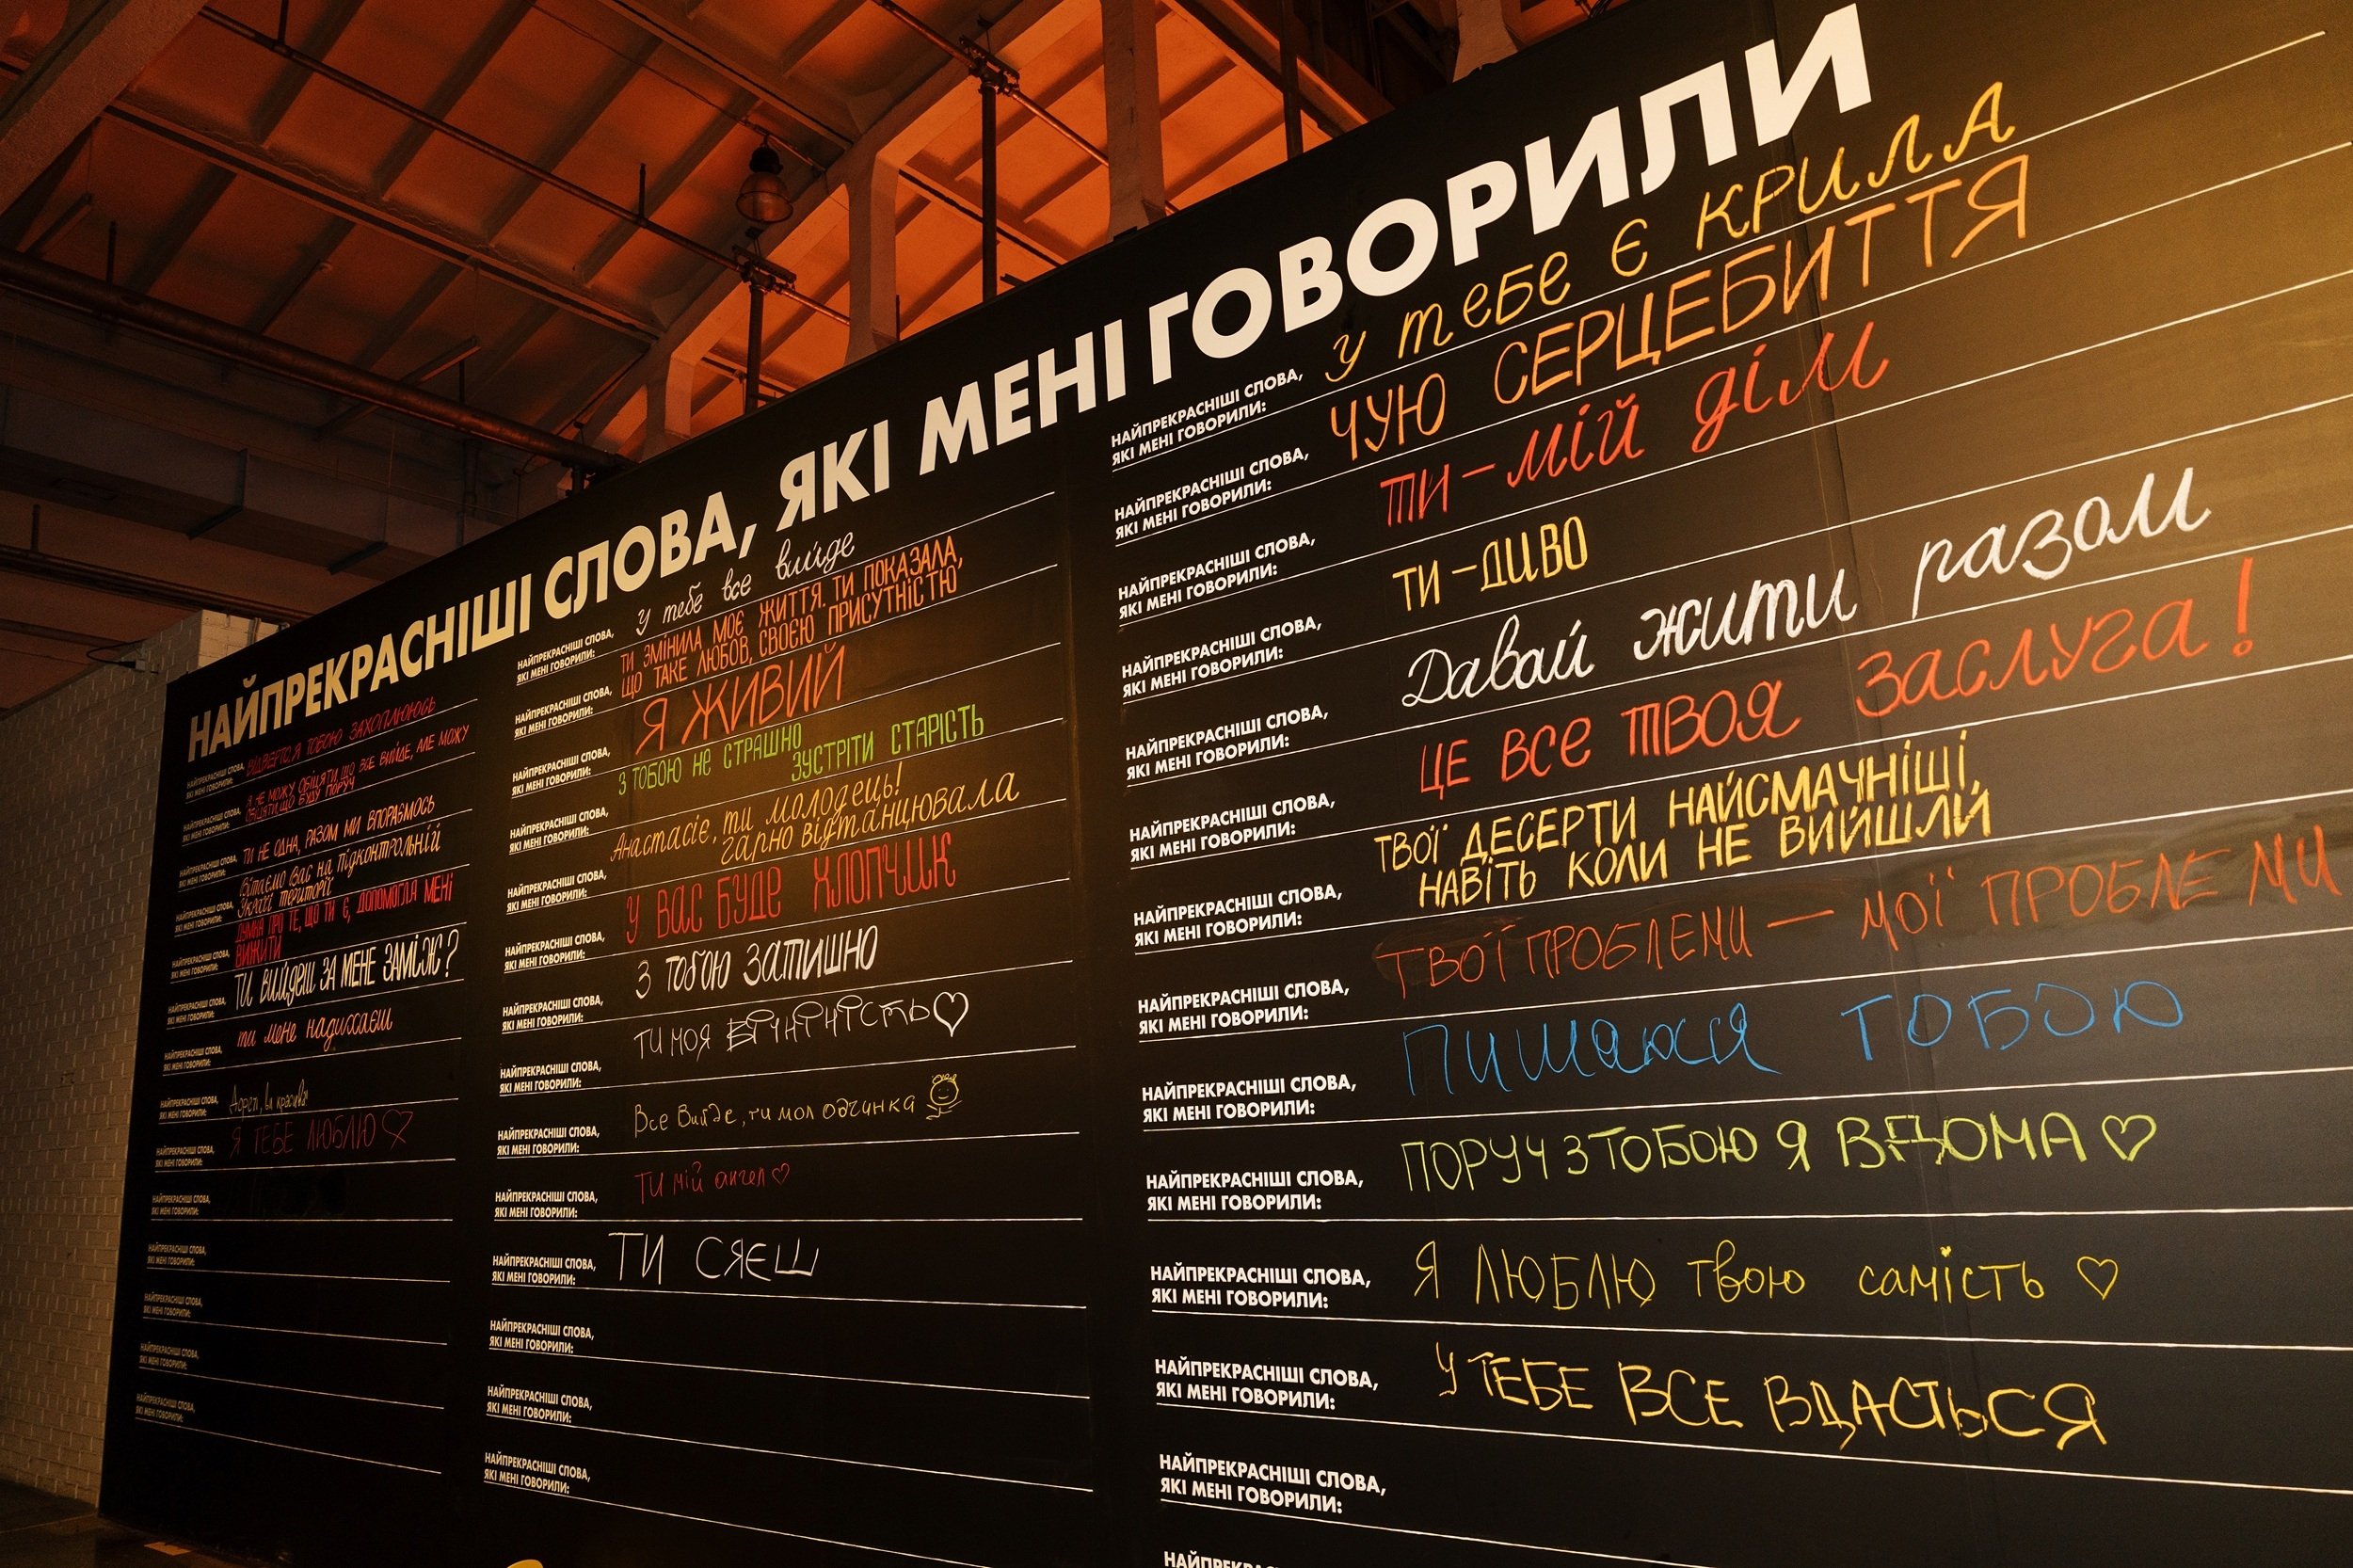 НАЙПРЕКРАСНІШІ СЛОВА, ЯКІ МЕНІ ГОВОРИЛИ
НАЙПРЕКРАСНІШІ СЛОВА,
ЯКІ МЕНІ ГОВОРИЛИ:
ВІДВЕРТО, Я ТОБОЮ ЗАХОПЛЮЮСЬ
НАЙПРЕКРАСНІШІ СЛОВА,
ЯКІ МЕНІ ГОВОРИЛИ:
Я НЕ МОЖУ ОБІЦЯТИ, ЩО ВСЕ ВИЙДЕ, АЛЕ МОЖУ
ОБІЦЯТИ, ЩО БУДУ ПОРУЧ
НАЙПРЕКРАСНІШІ СЛОВА,
ЯКІ МЕНІ ГОВОРИЛИ:
ТИ НЕ ОДНА, РАЗОМ МИ ВПОРАЄМОСЬ
НАЙПРЕКРАСНІШІ СЛОВА,
ЯКІ МЕНІ ГОВОРИЛИ:
Вітаємо Вас на підконтрольній
Україні території
НАЙПРЕКРАСНІШІ СЛОВА,
ЯКІ МЕНІ ГОВОРИЛИ:
ДУМКА ПРО ТЕ, ЩО ТИ Є, ДОПОМОГЛА МЕНІ
ВИЖИТИ
НАЙПРЕКРАСНІШІ СЛОВА,
ЯКІ МЕНІ ГОВОРИЛИ:
ТИ ВИЙДЕШ ЗА МЕНЕ ЗАМІЖ?
НАЙПРЕКРАСНІШІ СЛОВА,
ЯКІ МЕНІ ГОВОРИЛИ:
ти мене надихаєш
НАЙПРЕКРАСНІШІ СЛОВА,
ЯКІ МЕНІ ГОВОРИЛИ:
НАЙПРЕКРАСНІШІ СЛОВА,
ЯКІ МЕНІ ГОВОРИЛИ:
Я ТЕБЕ ЛЮБЛЮ ♡
НАЙПРЕКРАСНІШІ СЛОВА,
ЯКІ МЕНІ ГОВОРИЛИ:
НАЙПРЕКРАСНІШІ СЛОВА,
ЯКІ МЕНІ ГОВОРИЛИ:
НАЙПРЕКРАСНІШІ СЛОВА,
ЯКІ МЕНІ ГОВОРИЛИ:
НАЙПРЕКРАСНІШІ СЛОВА,
ЯКІ МЕНІ ГОВОРИЛИ:
НАЙПРЕКРАСНІШІ СЛОВА,
ЯКІ МЕНІ ГОВОРИЛИ:
НАЙПРЕКРАСНІШІ СЛОВА,
ЯКІ МЕНІ ГОВОРИЛИ:
У тебе все вийде
НАЙПРЕКРАСНІШІ СЛОВА,
ЯКІ МЕНІ ГОВОРИЛИ:
ТИ ЗМІНИЛА МОЄ ЖИТТЯ. ТИ ПОКАЗАЛА,
ЩО ТАКЕ ЛЮБОВ, СВОЄЮ ПРИСУТНІСТЮ
НАЙПРЕКРАСНІШІ СЛОВА,
ЯКІ МЕНІ ГОВОРИЛИ:
Я ЖИВИЙ
НАЙПРЕКРАСНІШІ СЛОВА,
ЯКІ МЕНІ ГОВОРИЛИ:
З ТОБОЮ НЕ СТРАШНО
ЗУСТРІТИ СТАРІСТЬ
НАЙПРЕКРАСНІШІ СЛОВА,
ЯКІ МЕНІ ГОВОРИЛИ:
Анастасіє, ти молодець!
гарно відтанцювала
НАЙПРЕКРАСНІШІ СЛОВА,
ЯКІ МЕНІ ГОВОРИЛИ:
У ВАС БУДЕ ХЛОПЧИК
НАЙПРЕКРАСНІШІ СЛОВА,
ЯКІ МЕНІ ГОВОРИЛИ:
З ТОБОЮ ЗАТИШНО
НАЙПРЕКРАСНІШІ СЛОВА,
ЯКІ МЕНІ ГОВОРИЛИ:
ТИ МОЯ ♡
НАЙПРЕКРАСНІШІ СЛОВА,
ЯКІ МЕНІ ГОВОРИЛИ:
Все вийде, ти моя
НАЙПРЕКРАСНІШІ СЛОВА,
ЯКІ МЕНІ ГОВОРИЛИ:
ТИ мій ангел ♡
НАЙПРЕКРАСНІШІ СЛОВА,
ЯКІ МЕНІ ГОВОРИЛИ:
ТИ СЯЄШ
НАЙПРЕКРАСНІШІ СЛОВА,
ЯКІ МЕНІ ГОВОРИЛИ:
НАЙПРЕКРАСНІШІ СЛОВА,
ЯКІ МЕНІ ГОВОРИЛИ:
НАЙПРЕКРАСНІШІ СЛОВА,
ЯКІ МЕНІ ГОВОРИЛИ:
НАЙПРЕКРАСНІШІ СЛОВА,
ЯКІ МЕНІ ГОВОРИЛИ:
у тебе є крила
НАЙПРЕКРАСНІШІ СЛОВА,
ЯКІ МЕНІ ГОВОРИЛИ:
ЧУЮ СЕРЦЕБИТТЯ
НАЙПРЕКРАСНІШІ СЛОВА,
ЯКІ МЕНІ ГОВОРИЛИ:
ТИ – мій дім
НАЙПРЕКРАСНІШІ СЛОВА,
ЯКІ МЕНІ ГОВОРИЛИ:
ТИ – ДИВО
НАЙПРЕКРАСНІШІ СЛОВА,
ЯКІ МЕНІ ГОВОРИЛИ:
Давай жити разом
НАЙПРЕКРАСНІШІ СЛОВА,
ЯКІ МЕНІ ГОВОРИЛИ:
ЦЕ ВСЕ ТВОЯ ЗАСЛУГА!
НАЙПРЕКРАСНІШІ СЛОВА,
ЯКІ МЕНІ ГОВОРИЛИ:
ТВОЇ ДЕСЕРТИ НАЙСМАЧНІШІ,
НАВІТЬ КОЛИ НЕ ВИЙШЛИ
НАЙПРЕКРАСНІШІ СЛОВА,
ЯКІ МЕНІ ГОВОРИЛИ:
ТВОЇ ПРОБЛЕМИ — МОЇ ПРОБЛЕМИ
НАЙПРЕКРАСНІШІ СЛОВА,
ЯКІ МЕНІ ГОВОРИЛИ:
ПИШАЮСЯ ТОБОЮ
НАЙПРЕКРАСНІШІ СЛОВА,
ЯКІ МЕНІ ГОВОРИЛИ:
ПОРУЧ З ТОБОЮ Я ВДОМА ♡
НАЙПРЕКРАСНІШІ СЛОВА,
ЯКІ МЕНІ ГОВОРИЛИ:
Я ЛЮБЛЮ твою самість ♡
НАЙПРЕКРАСНІШІ СЛОВА,
ЯКІ МЕНІ ГОВОРИЛИ:
У ТЕБЕ ВСЕ ВДАСТЬСЯ
НАЙПРЕКРАСНІШІ СЛОВА,
ЯКІ МЕНІ ГОВОРИЛИ: